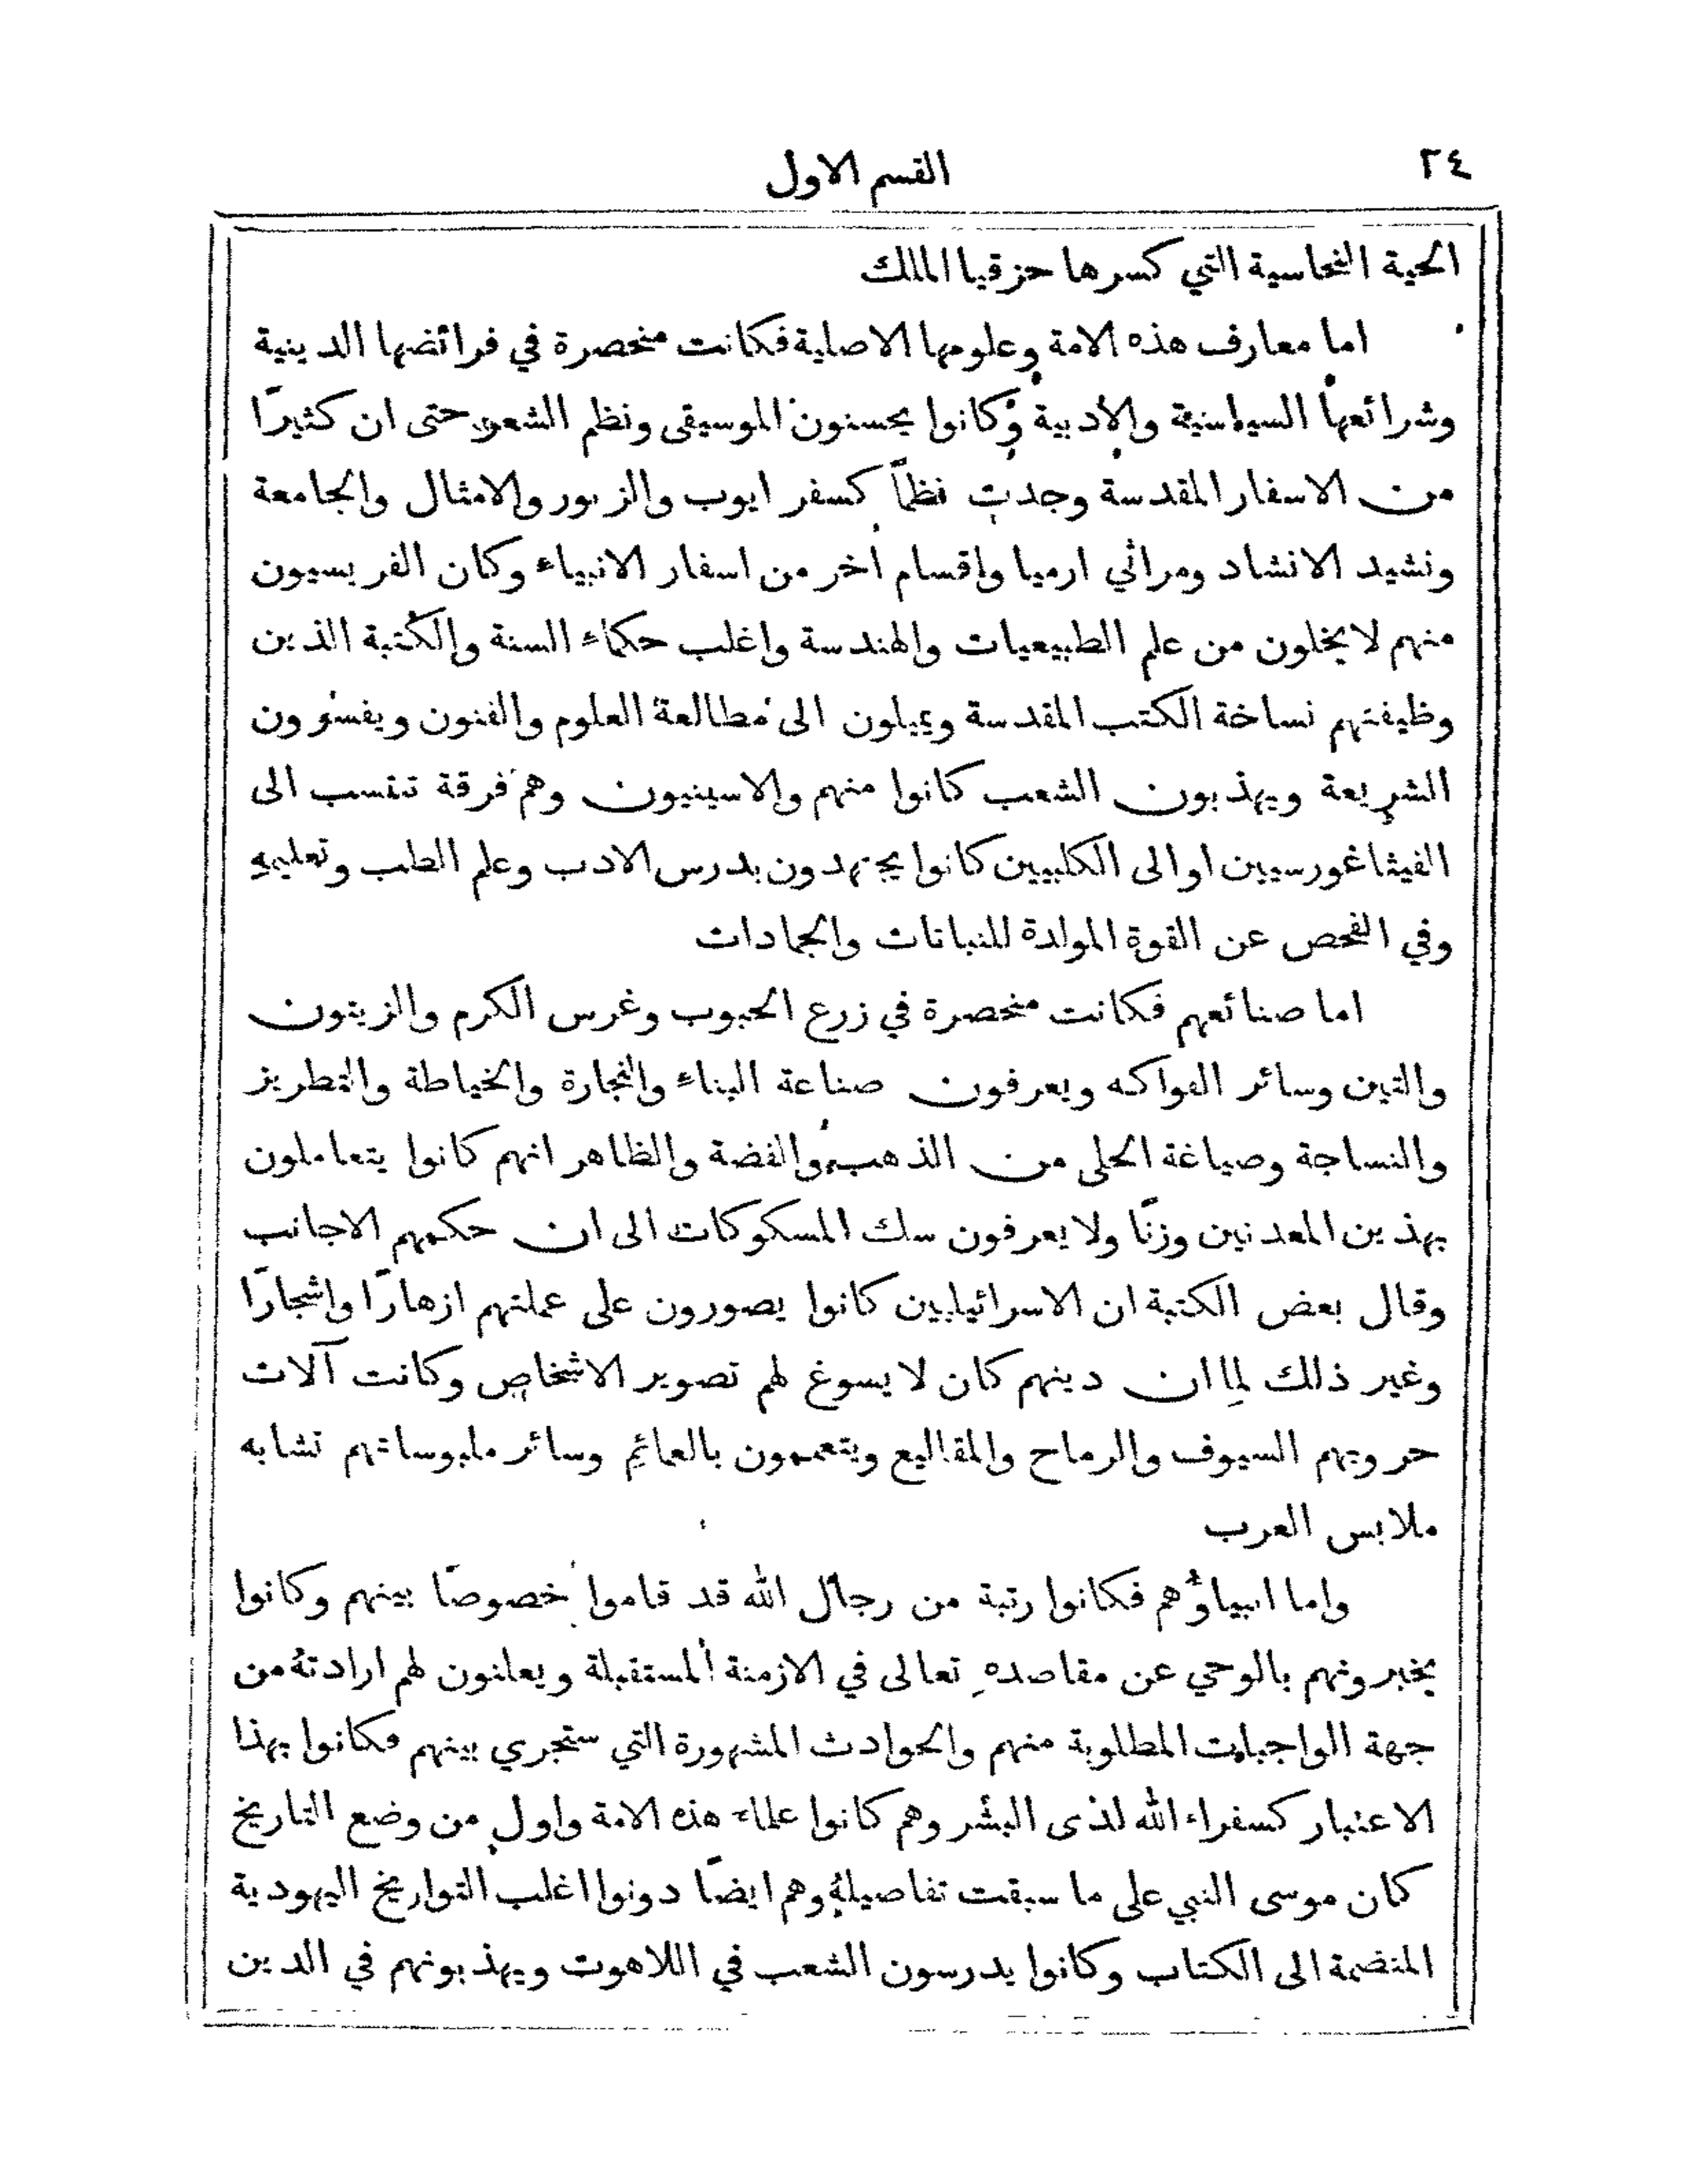 ٢٤
القسم الاول
الحية النحاسية التي كسرها حزقيا الملك
اما معارف هذه الامة وعلومها الاصلية فكانت منحصرة في فرائضها الدينية
وشرائعها السياسية والادبية وكانوا يحسنون الموسيقى ونظم الشعر حتى ان كثيرًا
من الاسفار المقدسة وجدت نظمًا كسفر ايوب والزبور والامثال والجامعة
ونشيد الانشاد ومراثي ارميا واقسام أخر من اسفار الانبياء وكان الفريسيون
منهم لا يخلون من علم الطبيعيات والهندسة واغلب حكماء السنة والكتبة الذين
وظيفتهم نساخة الكتب المقدسة ويميلون الى مطالعة العلوم والفنون ويفسرون
الشريعة ويهذبون الشعب كانوا منهم والاسينيون وهم فرقة تنتسب الى
الفيثاغورسيين او الى الكلبيين كانوا يجتهدون بدرس الادب وعلم الطب وتعليمهِ
وفي الفحص عن القوة المولدة للنباتات والجمادات
اما صنائعهم فكانت منحصرة في زرع الحبوب وغرس الكرم والزيتون
والتين وسائر الفواكه ويعرفون صناعة البناء والنجارة والخياطة والتطريز
والنساجة وصياغة الحلى من الذهب والفضة والظاهر انهم كانوا يتعاملون
بهذين المعدنين وزنًا ولا يعرفون سك المسكوكات الى ان حكمهم الاجانب
وقال بعض الكتبة ان الاسرائيليين كانوا يصورون على عملتهم ازهارًا واشجارًا
وغير ذلك لِما ان دينهم كان لا يسوغ لهم تصوير الاشخاص وكانت آلات
حروبهم السيوف والرماح والمقاليع ويتعممون بالعمائم وسائر ملبوساتهم تشابه
ملابس العرب
واما انبياؤهم فكانوا رتبة من رجال الله قد قاموا خصوصًا بينهم وكانوا
يخبرونهم بالوحي عن مقاصدهِ تعالى في الازمنة المستقبلة ويعلنون لهم ارادتهُ من
جهة الواجبات المطلوبة منهم والحوادث المشهورة التي ستجري بينهم فكانوا بهذا
الاعتبار كسفراء الله لدى البشر وهم كانوا علماء هذه الامة واول من وضع التاريخ
كان موسى النبي على ما سبقت تفاصيلهُ وهم ايضًا دونوا اغلب التواريخ اليهودية
المنضمة الى الكتاب وكانوا يدرسون الشعب في اللاهوت ويهذبونهم في الدين